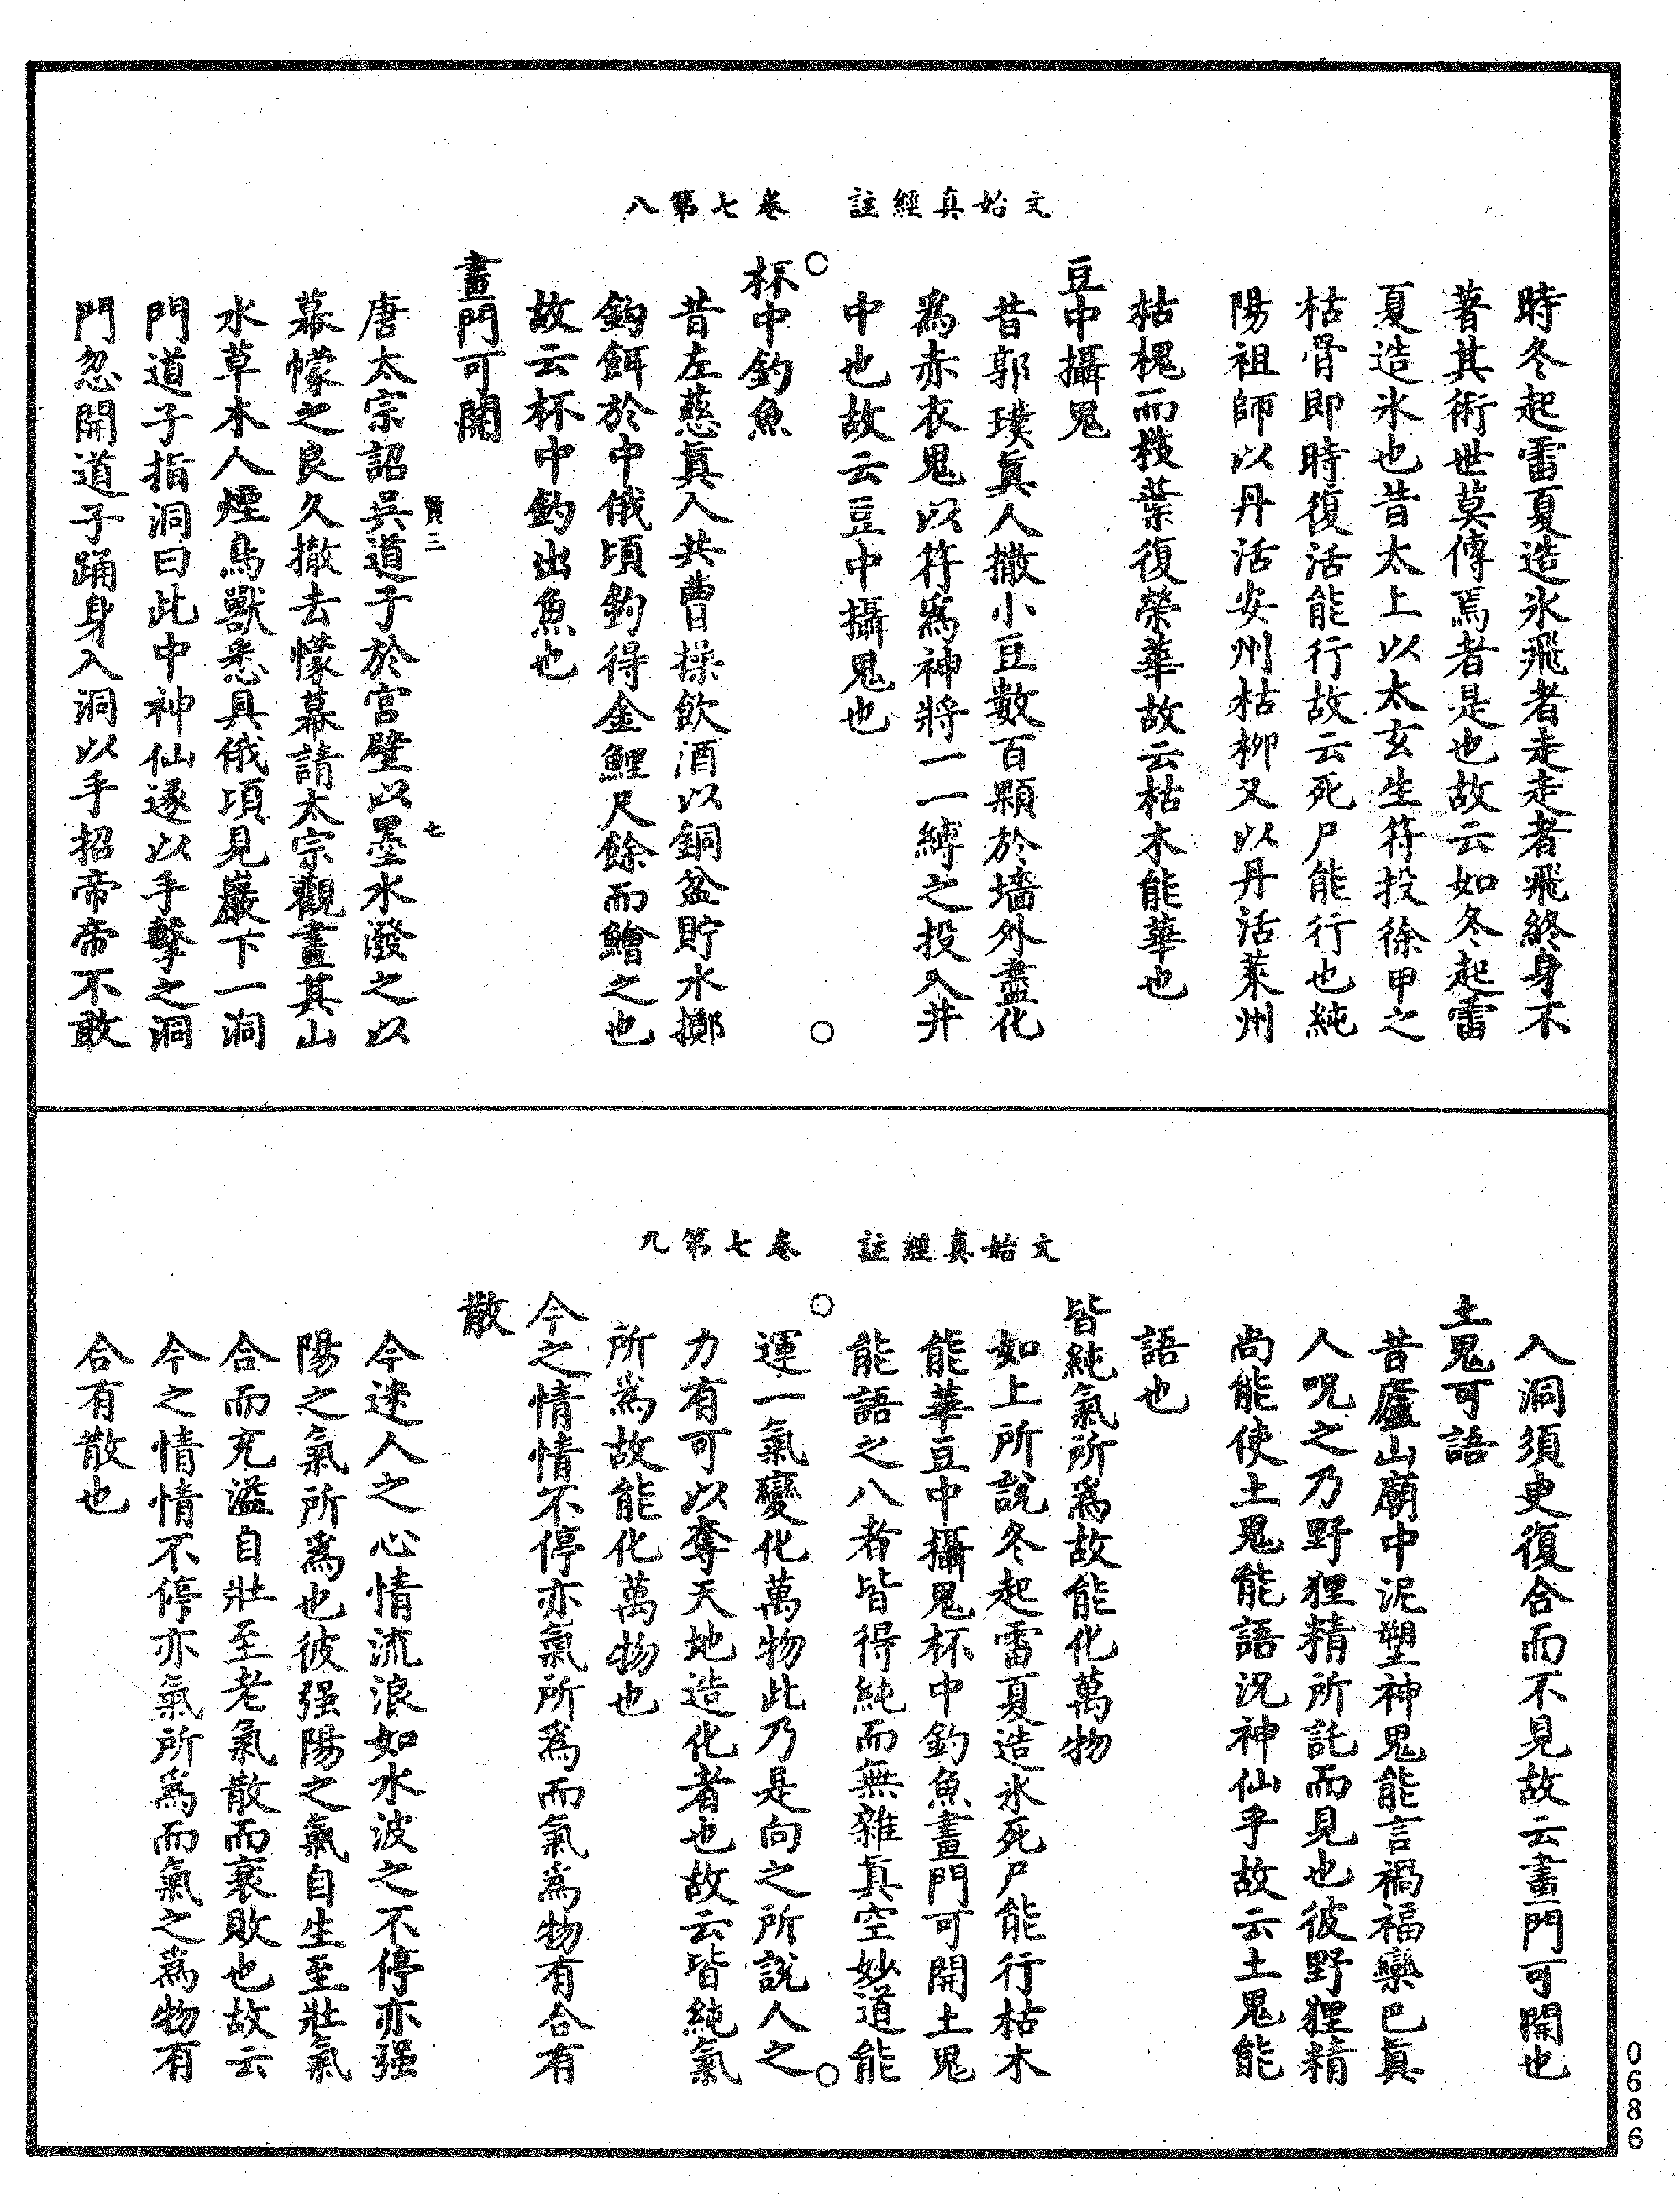 文始真經註　卷七第八
時冬起雷夏造氷飛者走走者飛終身不
著其術世莫傳焉者是也故云如冬起雷
夏造氷也昔太上以太玄生符投徐甲之
枯骨即時復活能行故云死尸能行也純
陽祖師以丹活安州枯柳又以丹活萊州
枯槐而枝葉復榮華故云枯木能華也
豆中攝鬼
昔郭璞真人撒小豆數百顆於墻外盡化
為赤衣鬼以符為神將一一縛之投入井
中也故云豆中攝鬼也
杯中釣魚
昔左慈真人共曹操飲酒以銅盆貯水擲
鈎餌於中俄頃鈎得金鯉尺餘而鱠之也
故云杯中釣出魚也
畫門可開
唐太宗詔吳道子於宮壁以墨水潑之以
幕幪之良久撤去幪幕請太宗觀畫其山
水草木人煙鳥獸悉具俄頃見巖下一洞
門道子指洞曰此中神仙遂以手擊之洞
門忽開道子踊身入洞以手招帝帝不敢
文始真經註　卷七第九
入洞須臾復合而不見故云畫門可開也
土鬼可語
昔廬山廟中泥塑神鬼能言禍福欒巴真
人呪之乃野狸精所託而見也彼野狸精
尚能使土鬼能語況神仙乎故云土鬼能
語也
皆純氣所為故能化萬物
如上所說冬起雷夏造氷死尸能行枯木
能華豆中攝鬼杯中釣魚畫門可開土鬼
能語之八者皆得純而無雜真空妙道能
運一氣變化萬物此乃是向之所說人之
力有可以奪天地造化者也故云皆純氣
所為故能化萬物也
今之情情不停亦氣所為而氣為物有合有
散
今迷人之心情流浪如水波之不停亦强
陽之氣所為也彼强陽之氣自生至壯氣
合而充溢自壯至老氣散而衰敗也故云
今之情情不停亦氣所為而氣之為物有
合有散也
0686